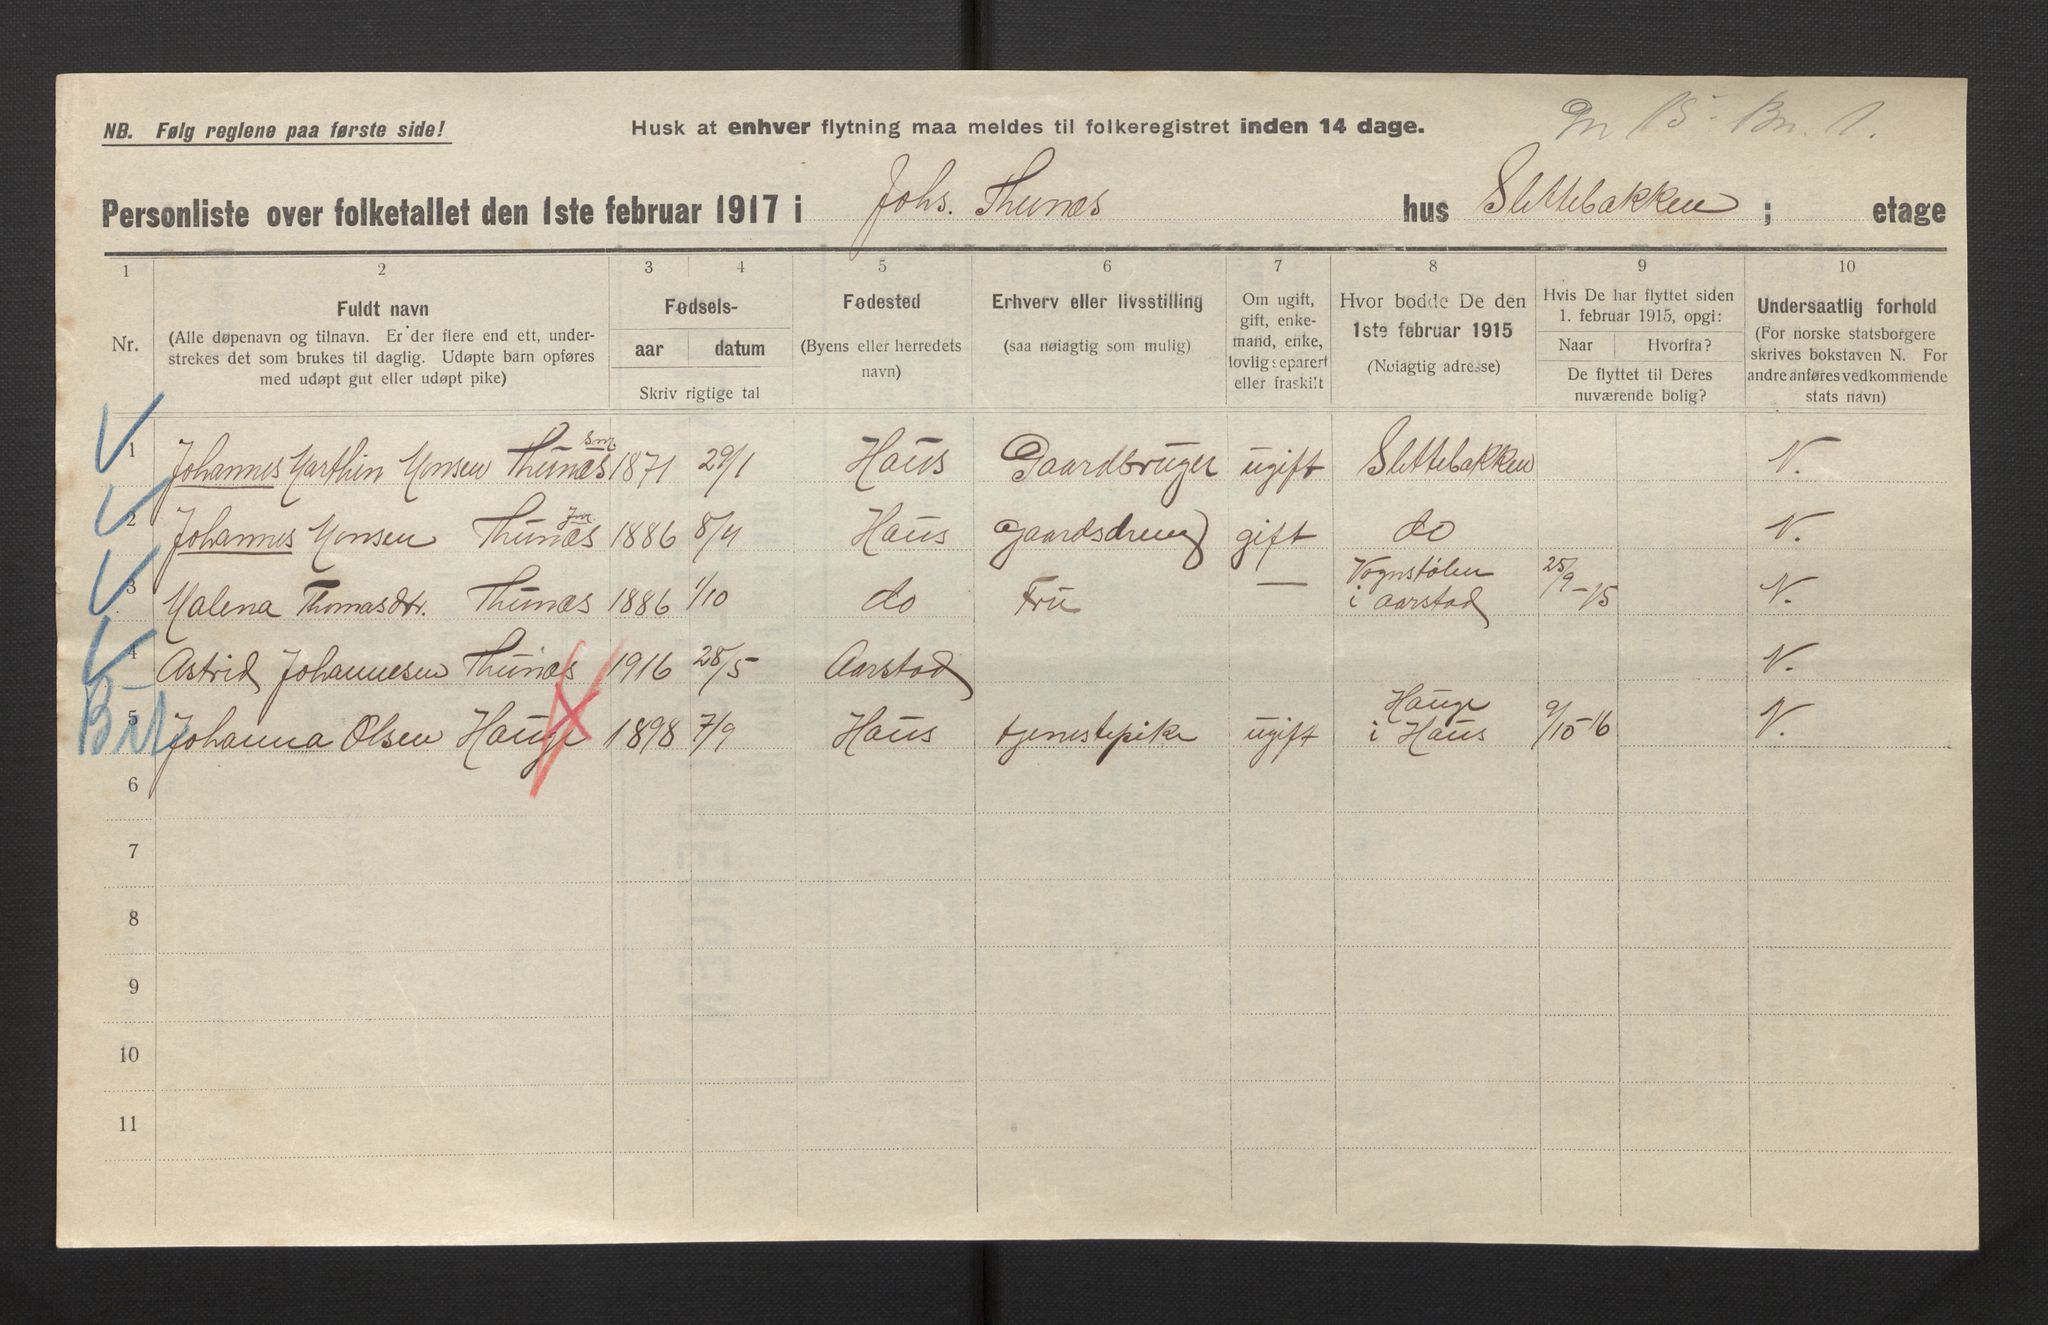 NB. Følg reglene paa første side!
Husk at enhver flytning maa meldes til folkeregistret inden 14 dage.
Gn 15 Bn. 1.
Personliste over folketallet den 1ste februar 1917 i Johs. Thunæs hus Slettebakken ; etage
1 2 3 4 5 6 7 8 9 10
Nr.
Fuldt navn
(Alle døpenavn og tilnavn. Er der flere end ett, under-
strekes det som brukes til daglig. Udøpte barn opføres
med udøpt gut eller udøpt pike)
Fødsels-
aar datum
Skriv rigtige tal
Fødested
(Byens eller herredets
navn)
Erhverv eller livsstilling
(saa nøiagtig som mulig)
Om ugift,
gift, enke-
mand, enke,
lovlig separert
eller fraskilt
Hvor bodde De den
1ste februar 1915
(Nøiagtig adresse)
Hvis De har flyttet siden
1. februar 1915, opgi:
Naar Hvorfra?
De flyttet til Deres
nuværende bolig?
Undersaatlig forhold
(For norske statsborgere
skrives bokstaven N. For
andre anføres vedkommende
stats navn)
1 Johannes Marthin Monsen Thunæs sn. 1871 29/1 Haus Gaardbruger ugift Slettebakken N.
2 Johannes Monsen Thunæs jn. 1886 8/4 Haus Gaardsdreng gift do N.
3 Malena Thomasdtr. Thunæs 1886 1/10 do Fru — Vognstølen i Aarstad 25/9-15 N.
4 Astrid Johannesen Thunæs 1916 28/5 Aarstad N.
5 Johanna Olsen Hauge 1898 7/9 Haus tjenestepike ugift Hauge i Haus 9/10-16 N.
6
7
8
9
10
11